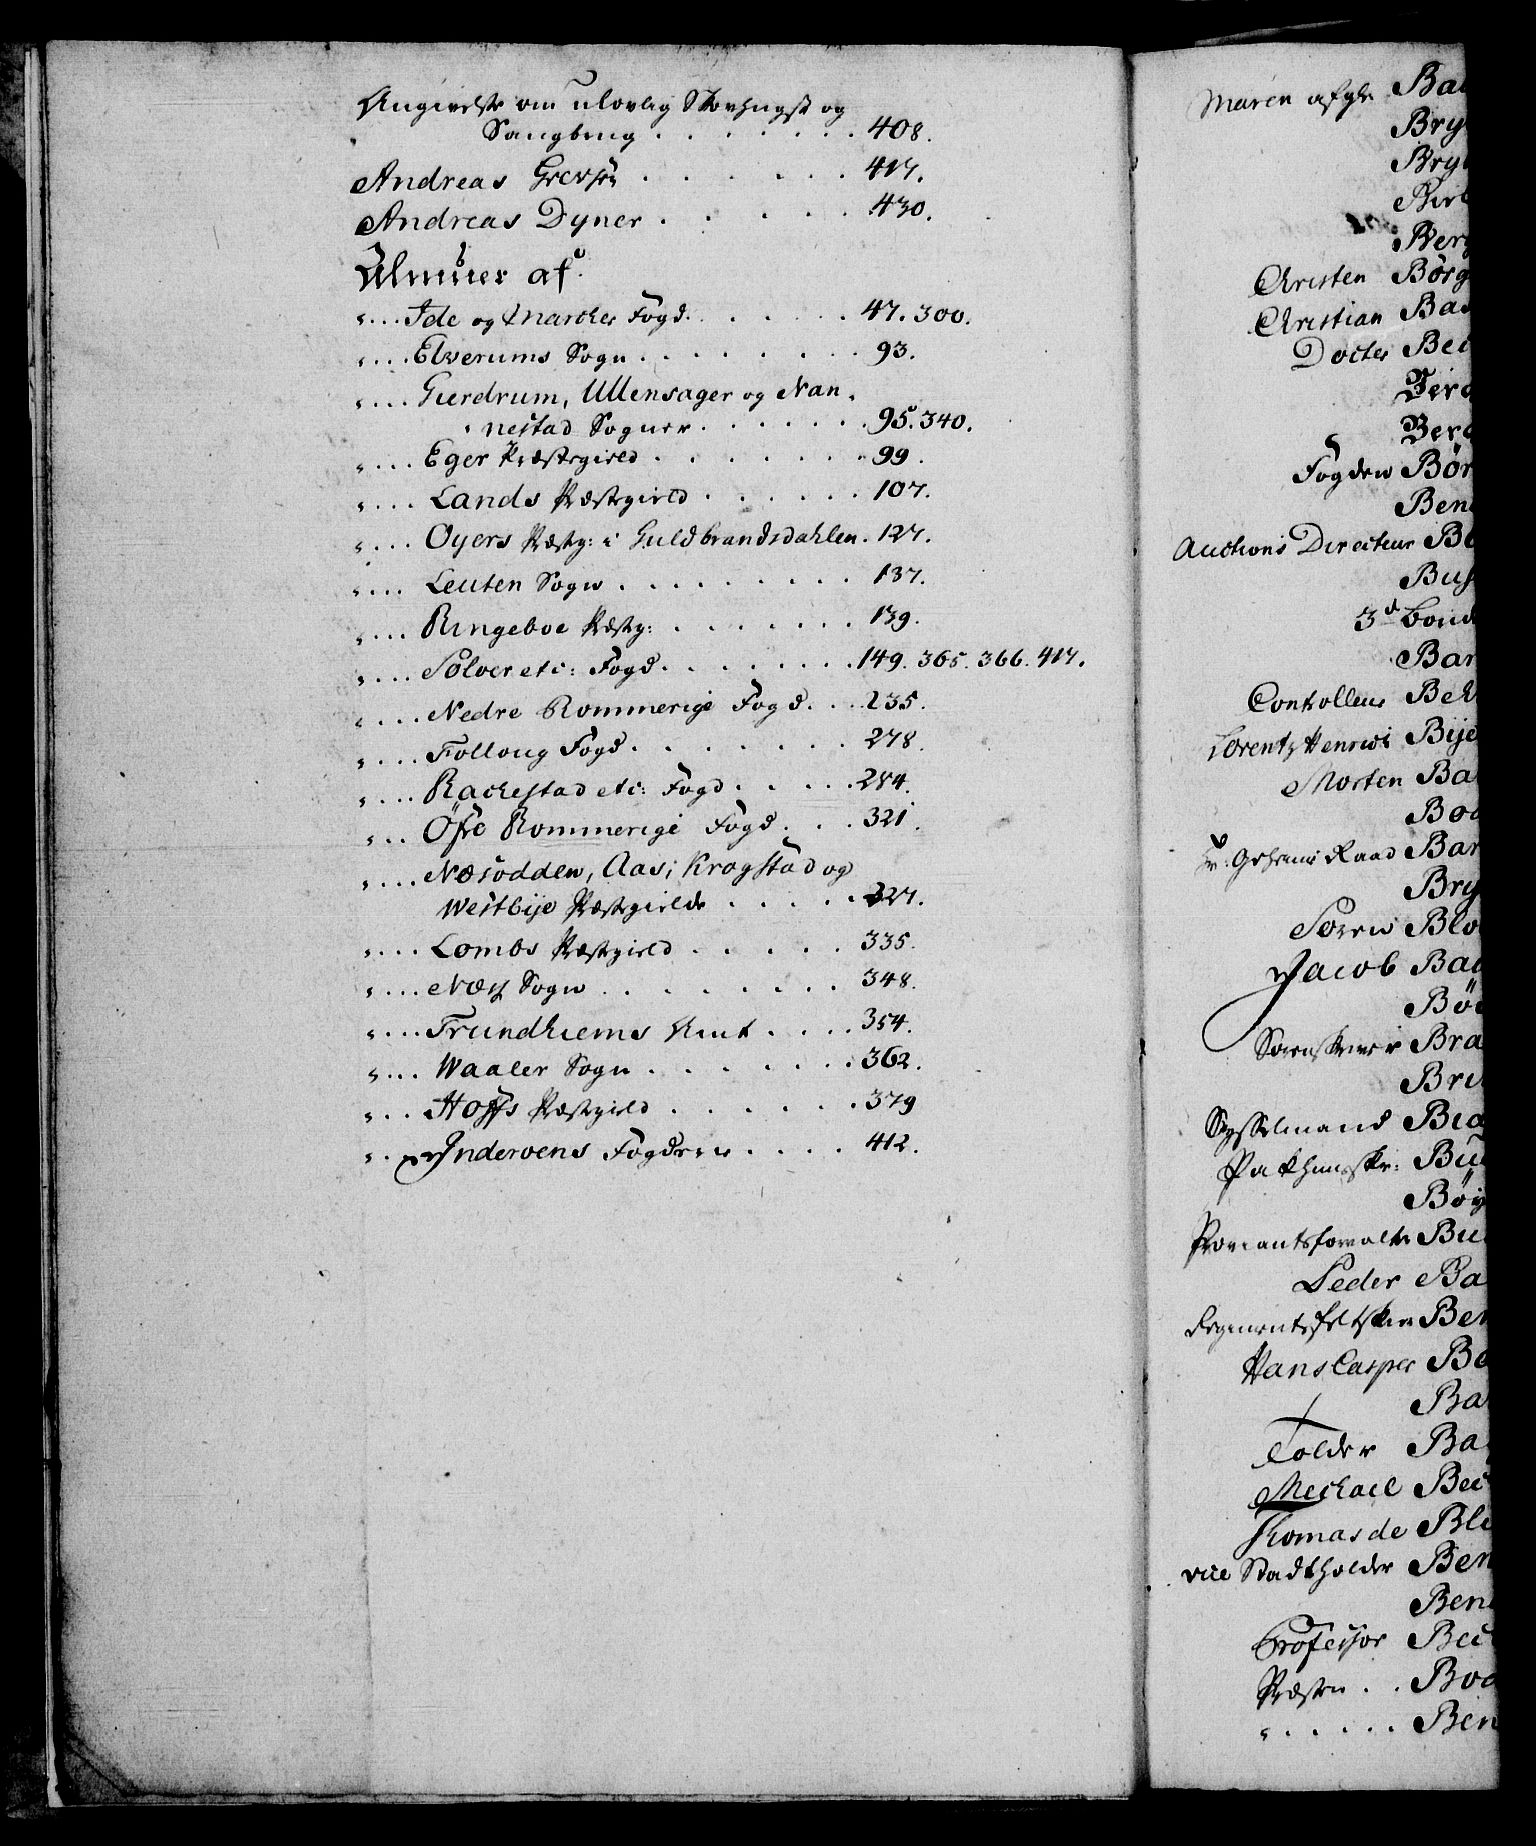 Angivelse om ulovlig Skovhugst og
Saugbrug . . . . . . . 408.
Andreas . . . . . . 417.
Andreas Dyner . . . . . 430.
Almuer af.
" . . . Ide og Marcker Fogd. . . . . . 47. 300.
" . . . Elverums Sogn . . . . . . . . 93.
" . . . Gierdrum, Ullensager og Nan-
nestad Sogner . . . . . . . 95. 340.
" . . . Eger Præstegield . . . . . . . 99.
" . . . Lands Præstegield . . . . . . 107.
" . . . Oyers Præstg: i Guldbrandsdahlen. 127.
" . . . Leuten Sogn . . . . . . . . 137.
" . . . Ringeboe Præstg: . . . . . . . 139.
" . . . Solver etc: Fogd. . . . . . . . 149. 365. 366. 417.
" . . . Nedre Rommerige Fogd. . . 235.
" . . . Folloug Fogd. . . . . . . 278.
" . . . Rackestad etc: Fogd . . . . . 284.
" . . Öfre Rommerige Fogd . . . 321.
" . . . Næsodden, Aas, Krogstad og
Westbye Præstegielde . . . . . 327.
" . . . Lombs Præstegield . . . . . 335.
" . . . Næss Sogn . . . . . . . . 348.
" . . . Trundhiems Amt . . . . 354.
" . . . Waaler Sogn . . . . . . . 362.
" . . . Hoffs Præstegield . . . . . . 379
" . . Inderoens Fogderie . . . . 412.
Maren afgle Bal
Bry
Bry
Birc
Berg
Christen Börg
Christian Bas
Docter Bec
Berg
Fogden Bör
Ben
Auctions Directeur
Bus
3d Bond
Bar
Controlleur Beh
Lorentz Henrich Bije
Morten Ba
Boc
Hr: Geheime Raad Bar
Bry
Sören Blo
Jacob Bac
Bö
Sorenskriver Bra
Bri
Sysselmand
Pakhuusskr: Bu
Böy
Proviantsforvalter Bu
Peder Ba
Regimentsfeltskier Ber
Hans Casper
Ba
Tolder Ba
Michael Bec
Thomas de Bl
vice Stadtholder Ben
Ben
Professor Bec
Præsten . . Bo
" . . . . . Ben